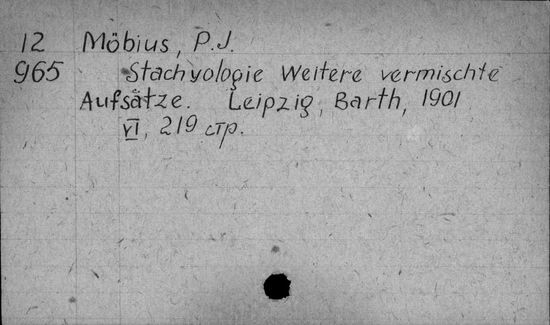 12 Möbius, P.J.
965 Stachyologie Weitere vermischte
Aufsätze. Leipzig, Barth, 1901
VI, 219 стр.